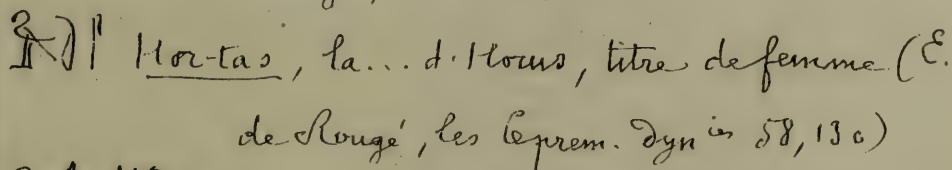 Hor-tas, la... d'Horus, titre de femme (E.
de Rougé, les 6 prem. Dyn ies 58, 130)